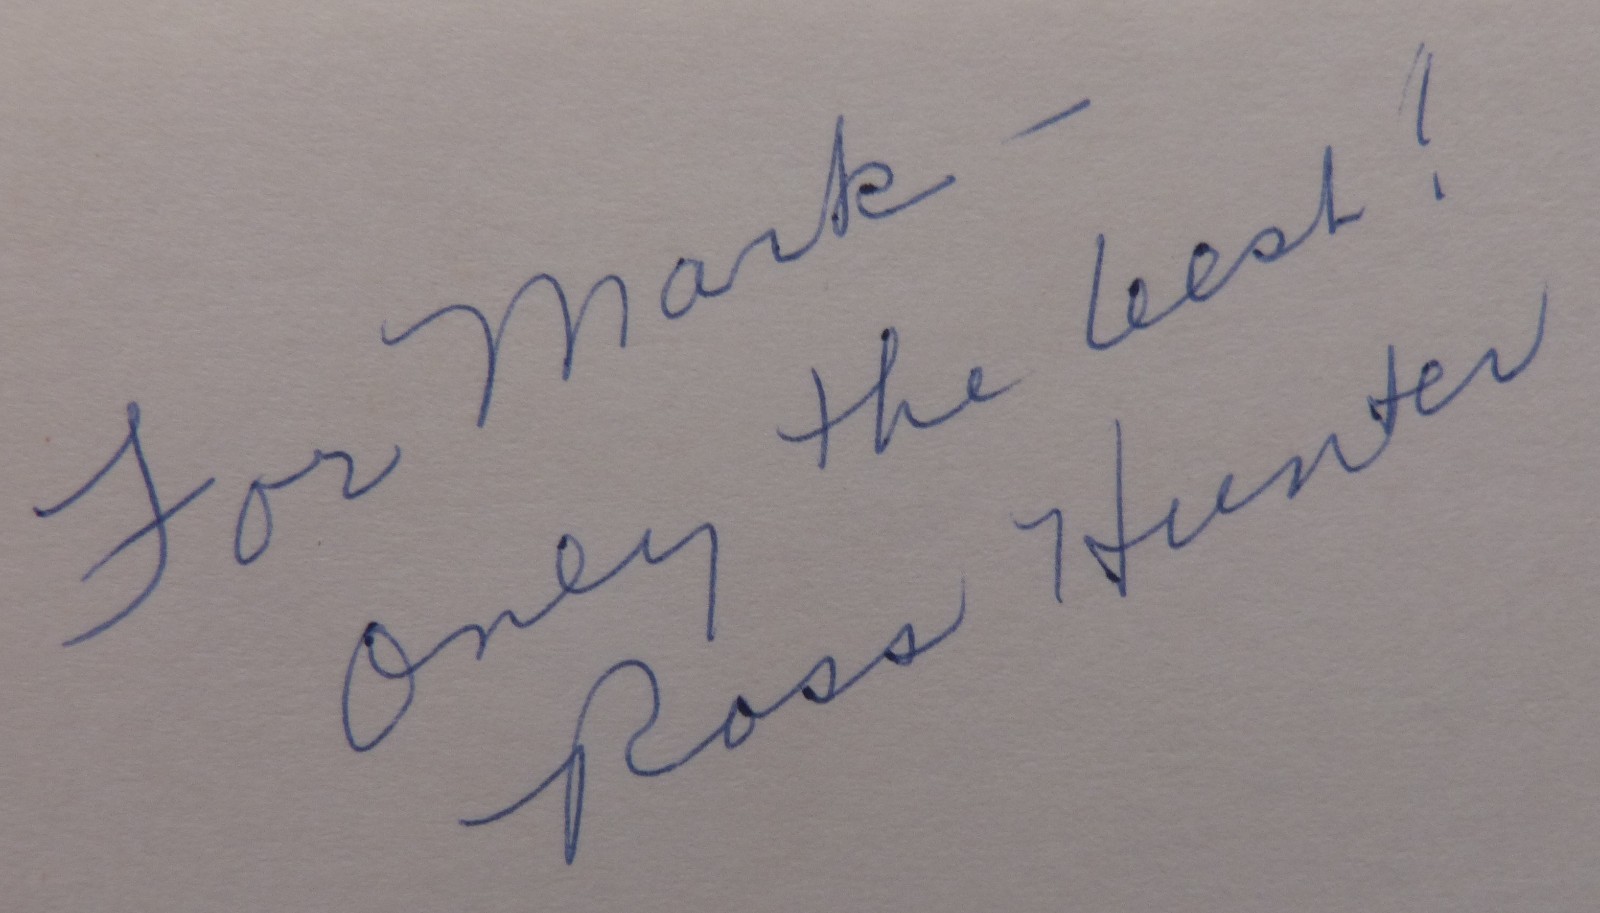 For Mark –
Only the best!
Ross Hunter